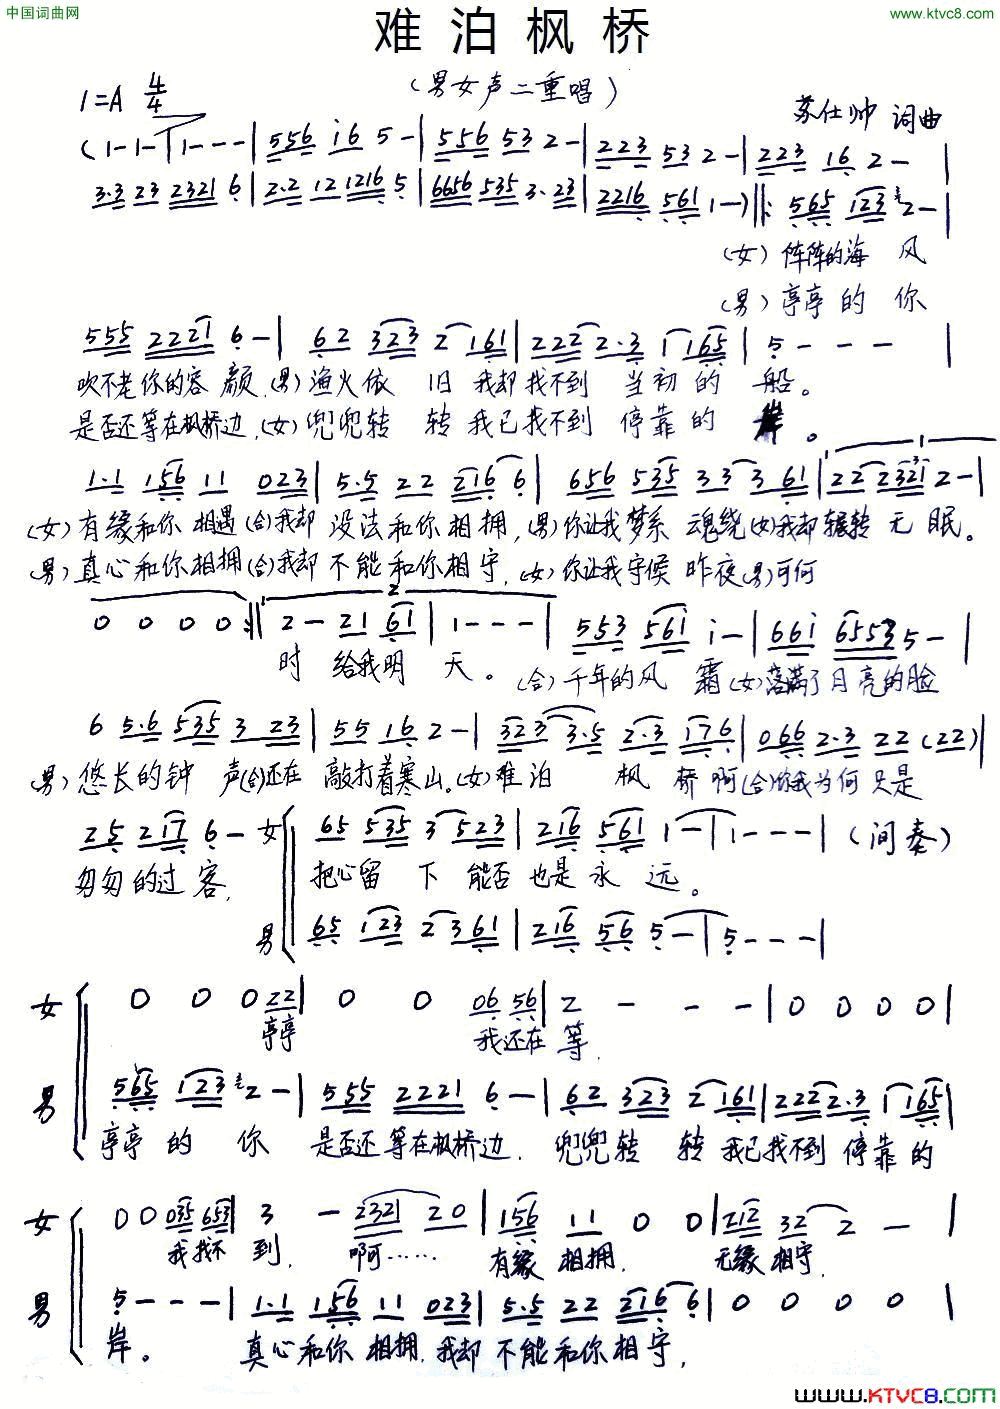 中国词曲网
www.ktvc8.com
难泊枫桥
(男女声二重唱)
1=A 4/4
苏仕帅 词曲
(1-1-|1---|556 i6 5-|556 53 2-|223 53 2-|223 16 2-|
3·3 23 2321 6|2·2 12 1216 5|6656 535 3·23|2216 561 1-)‖:565 123 2-|
(女)阵阵的海 风
(男)亭亭的 你
555 2221 6-|62 323 2 161|222 2·3 1 165|5---|
吹不老你的容 颜.(男)渔火依 旧 我却找不到 当初的 船。
是否还等在枫桥边,(女)兜兜转 转 我已找不到 停靠的 岸。
1·1 156 11 023|5·5 22 216 6|656 535 33 3 61|22 2321 2-|
(女)有缘和你 相遇(合)我却 没法和你相拥,(男)你让我梦系 魂绕(女)我却辗转 无 眠。
(男)真心和你相拥(合)我却 不能和你相守,(女)你让我守候 昨夜(男)可何
0 0 0 0:‖2-21 61|1---|553 561 i-|66i 6553 5-|
时 给我明 天。(合)千年的风 霜(女)落满了月亮的脸
6 5·6 535 3 23|55 16 2-|323 3·5 2·3 176|066 2·3 22(22)|
男)悠长的钟 声(合)还在 敲打着寒山。(女)难泊 枫 桥啊(合)你我为何只是
25 217 6- 女 65 535 3 523|216 561 1-|1---|(间奏)
匆匆的过 客, 把心留 下 能否 也是永 远。
男 65 123 2 361|216 56 5-|5---|
女 0 0 0 22|0 0 06 56|2 - - -|0 0 0 0|
亭亭 我还在 等,
男 565 123 2-|555 2221 6-|62 323 2 161|222 2·3 1 165|
亭亭 的 你 是否还等在枫桥边, 兜兜转 转 我已找不到 停靠的
女 0 0 035 653|3 - 2321 20|156 11 0 0|212 32 2 -|
我找不 到, 啊…… 有缘 相拥, 无缘 相守,
男 5---|1·1 156 11 023|5·5 22 216 6|0 0 0 0|
岸。 真心和你 相拥,我却 不能和你相守,
www.KTVC8.com